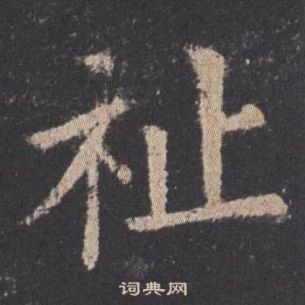 祉
词典网